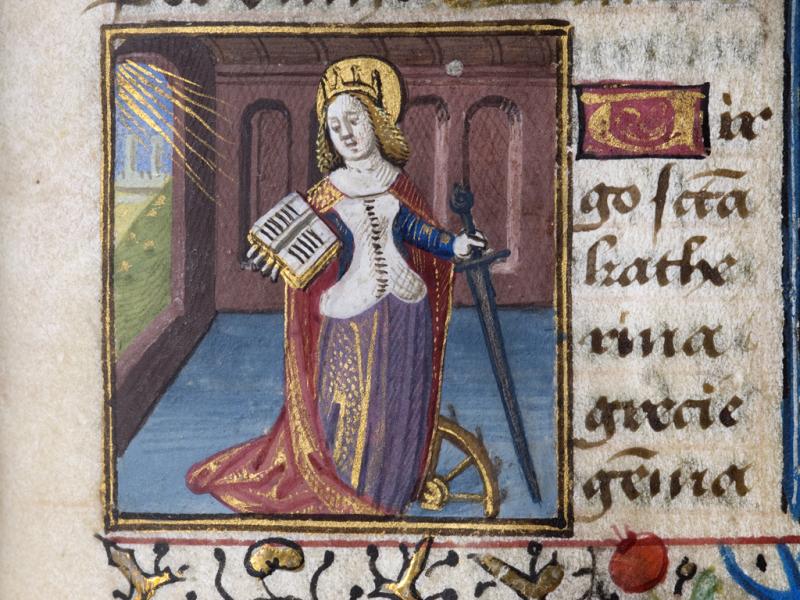 Vir
go sc̄ta
kathe
rina
grecie
gēma